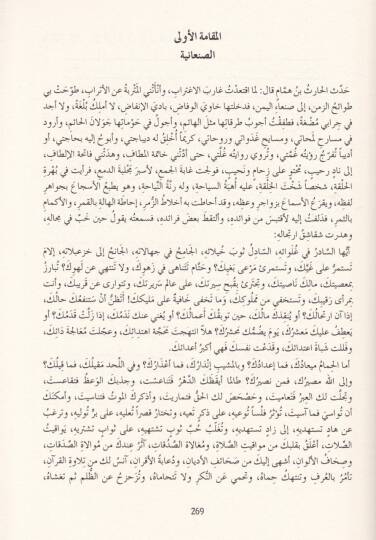 المقامة الأولى
الصنعانية
حَدّث الحارثُ بنُ همّامٍ قال: لما اقتعدْتُ غاربَ الاغتراب، وأنْأتْني المَتْرَبةُ عن الأتراب، طوّحَتْ بي
طوائحُ الزمن، إلى صنعاء اليمن، فدخلتها خاويَ الوِفاض، باديَ الإنفاض، لا أملِكُ بُلْغَةً، ولا أجد
في جِرابي مُضْغَةً، فطفِقْتُ أجوبُ طرقاتِها مثلَ الهائم، وأجولُ في حَوْماتِها جَوَلانَ الحائم، وأرود
في مسارح لمحاتي، ومسايح غَدَواتي وروحاتي، كريماً أُخْلِقُ له ديباجتي، وأبوحُ إليه بحاجتي، أو
أديباً تُفَرّجُ رؤيتُه غُمّتي، وتُروي روايتُه غُلّتي، حتى أدّتْني خاتمةُ المطاف، وهدَتْني فاتحةُ الإلطاف،
إلى نادٍ رحيبٍ، مُحْتَوٍ على زحامٍ ونَحيب، فولجت غابةَ الجمع، لأسبُرَ مَجْلَبةَ الدمع، فرأيت في بُهْرة
الحلْقة، شخصاً شَخْتَ الخِلْقَة، عليه أُهْبَةُ السياحة، وله رنّةُ النِّياحة، وهو يطبعُ الأسجاعَ بجواهرِ
لفظه، ويقرَعُ الأسماعَ بزواجرِ وعظه، وقد أحاطت به أخلاطُ الزُّمر، إحاطةَ الهالة بالقمر، والأكمام
بالثمر، فدلفتُ إليه لأقتبسَ من فوائده، وألتقطَ بعضَ فرائده، فسمعتُه يقولُ حين خَبّ في مجاله،
وهدرت شقاشقُ ارتجاله:
أيّها السادرُ في غُلَوائه، السادِلُ ثوبَ خُيلائه، الجامحُ في جهالاته، الجانحُ إلى خزعبلاته، إلامَ
تستمرُّ على غَيِّكَ، وتستمرئُ مَرْعى بَغْيِكَ؟ وحتّام تَتَناهى في زهوِكَ، ولا تنتهي عن لهوِكَ؟ تُبارزُ
بمعصيتِكَ، مالِكَ ناصيتِكَ، وتجترئُ بقُبحِ سيرتِك، على عالمِ سَريرتِك، وتتوارى عن قَريبكَ، وأنت
بمرأى رَقيبِكَ، وتستخفي من مملوكِكَ، وَما تخفى خافيةٌ على مَليكك! أتظنّ أنْ ستنفعُكَ حالُكَ،
إذا آن ارتحالُكَ؟ أو يُنقِذكَ مالُكَ، حين توبِقُكَ أعمالُكَ؟ أو يُغني عنك نَدَمُكَ، إذا زلّتْ قَدَمُكَ؟ أو
يَعطفُ عليكَ مَعشرُكَ، يومَ يضُمُّك محشرُكَ؟ هلاّ انتهجتَ مَحجّةَ اهتدائِكَ، وعجّلتَ مُعالجةَ دائِكَ،
وفللتَ شَباةَ اعتدائكَ، وقَدَعْت نفسكَ فهي أكبرُ أعدائك.
أما الحِمامُ ميعادُكَ، فما إعدادُكَ؟ وبالمشيبِ إنذارُكَ، فما أعذارُكَ؟ وفي اللّحد مَقيلُكَ، فما قِيلُكَ؟
وإلى الله مصيرُك، فمن نصيرُك؟ طالما أيقظَكَ الدّهرُ فتناعست، وجذبكَ الوَعظُ فتقاعستَ،
وتجلّت لك العِبرُ فتعاميتَ، وحَصْحَصَ لك الحقُّ فتماريتَ، وأذكركَ الموتُ فتناسيتَ، وأمكنَكَ
أن تُواسيَ فما آسيتَ، تُؤثرُ فَلْساً تُوعيه، على ذكرٍ تَعيه، وتختارُ قصراً تُعليه، على بِرٍّ تُوليه، وترغبُ
عن هادٍ تستهديه، إلى زادٍ تستهديه، وتُغلِّبُ حُبَّ ثوبٍ تشتهيه، على ثوابٍ تشتريه، يَواقيتُ
الصِّلات، أعلَقُ بقلبِكَ من مواقيتِ الصّلاة، ومُغالاة الصُّدُقاتِ، آثرُ عندك من مُوالاة الصّدَقاتِ،
وصِحَافُ الألوان، أشهى إليكَ من صَحَائفِ الأديان، ودُعابةُ الأقران، آنسُ لك من تلاوة القرآن،
تأمُرُ بالعُرفِ وتنتهِكُ حِماهُ، وتحمي عن النُكر ولا تتحاماهُ، وتُزحزحُ عن الظُلم ثم تغشاهُ،
269